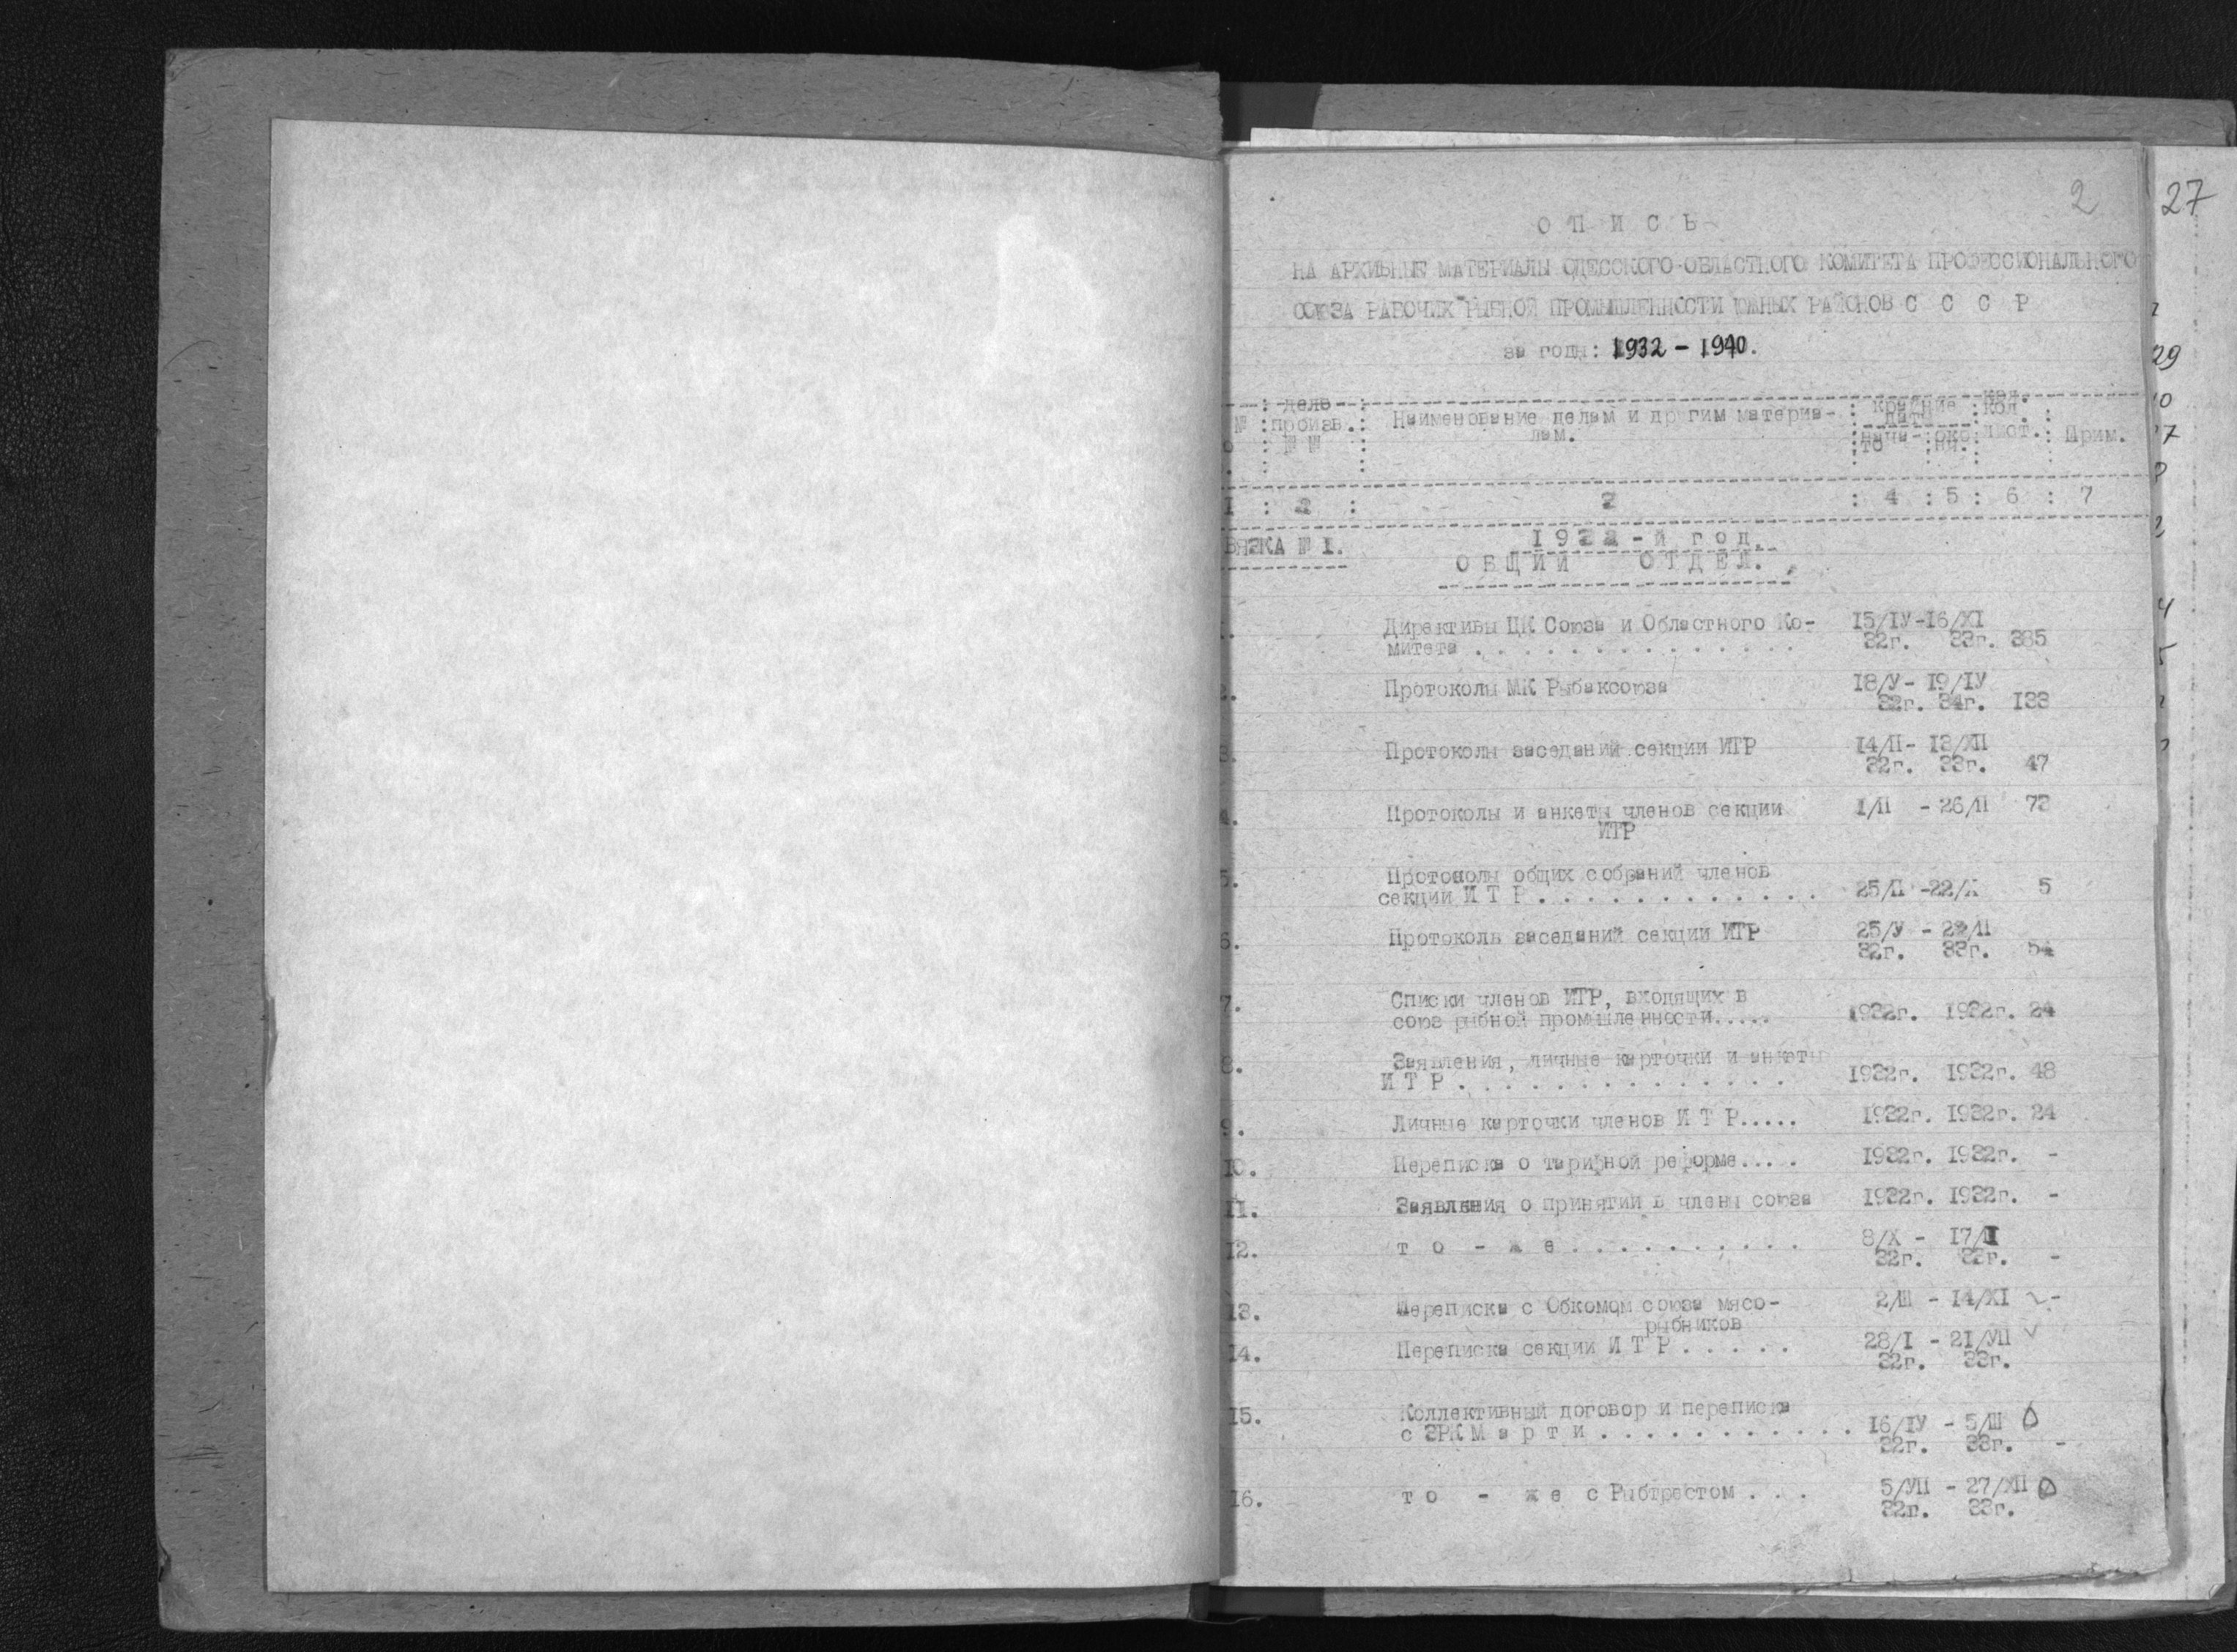 2
27
О П И С Ь
НА АРХИВНЫЕ МАТЕРИАЛЫ ОДЕССКОГО ОБЛАСТНОГО КОМИТЕТА ПРОФЕССИОНАЛЬНОГО
СОЮЗА РАБОЧИХ РЫБНОЙ ПРОМЫШЛЕННОСТИ ЮЖНЫХ РАЙОНОВ С С С Р
за годы: 1932 - 1940.
№ : дело произв. №№ : Наименование делам и другим материа- : крайние : кол. :
лам. : нача- то : око нч. : лист. : Прим.
I : 2 : 3 : 4 : 5 : 6 : 7
ВЯЗКА № I. 1932-й год.
ОБЩИЙ ОТДЕЛ.
Директивы ЦК Союза и Областного Ко- I5/IУ-I6/XI
митета . . . . . . . . . . . . . . 32г. 33г. 385
2. Протоколы МК Рыбаксоюза I8/У- I9/IУ
32г. 34г. I33
3. Протоколы заседаний секции ИТР I4/II- I3/XII
32г. 33г. 47
4. Протоколы и анкеты членов секции I/II - 26/II 73
ИТР
5. Протоколы общих собраний членов
секции И Т Р . . . . . . . . . . . . 25/II -22/X 5
6. Протоколы заседаний секции ИТР 25/У - 22/II
32г. 33г. 54
7. Списки членов ИТР, входящих в
союз рыбной промышленности..... I932г. I932г. 24
8. Заявления, личные карточки и анкеты
И Т Р . . . . . . . . . . . . . . I932г. I932г. 48
9. Личные карточки членов И Т Р..... I932г. I932г. 24
I0. Переписка о тарифной реформе..... I932г. I932г. -
II. Заявления о принятии в члены союза I932г. I932г. -
I2. т о - ж е . . . . . . . . . . 8/X - I7/II
32г. 33г. -
I3. Переписка с Обкомом союза мясо- 2/Ш - I4/XI -
рыбников
I4. Переписка секции И Т Р . . . . . 28/I - 2I/УП
32г. 33г.
I5. Коллективный договор и переписка
с ЗРК М а р т и . . . . . . . . . . . I6/IУ - 5/Ш
32г. 33г. -
I6. т о - ж е с Рыбтрестом . . . 5/УП - 27/XII
32г. 33г.
29